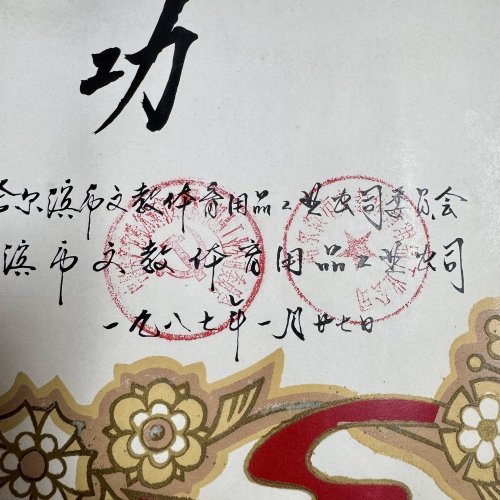 功
哈尔滨市文教体育用品工业公司委员会
滨市文教体育用品工业公司
一九八七年一月廿七日